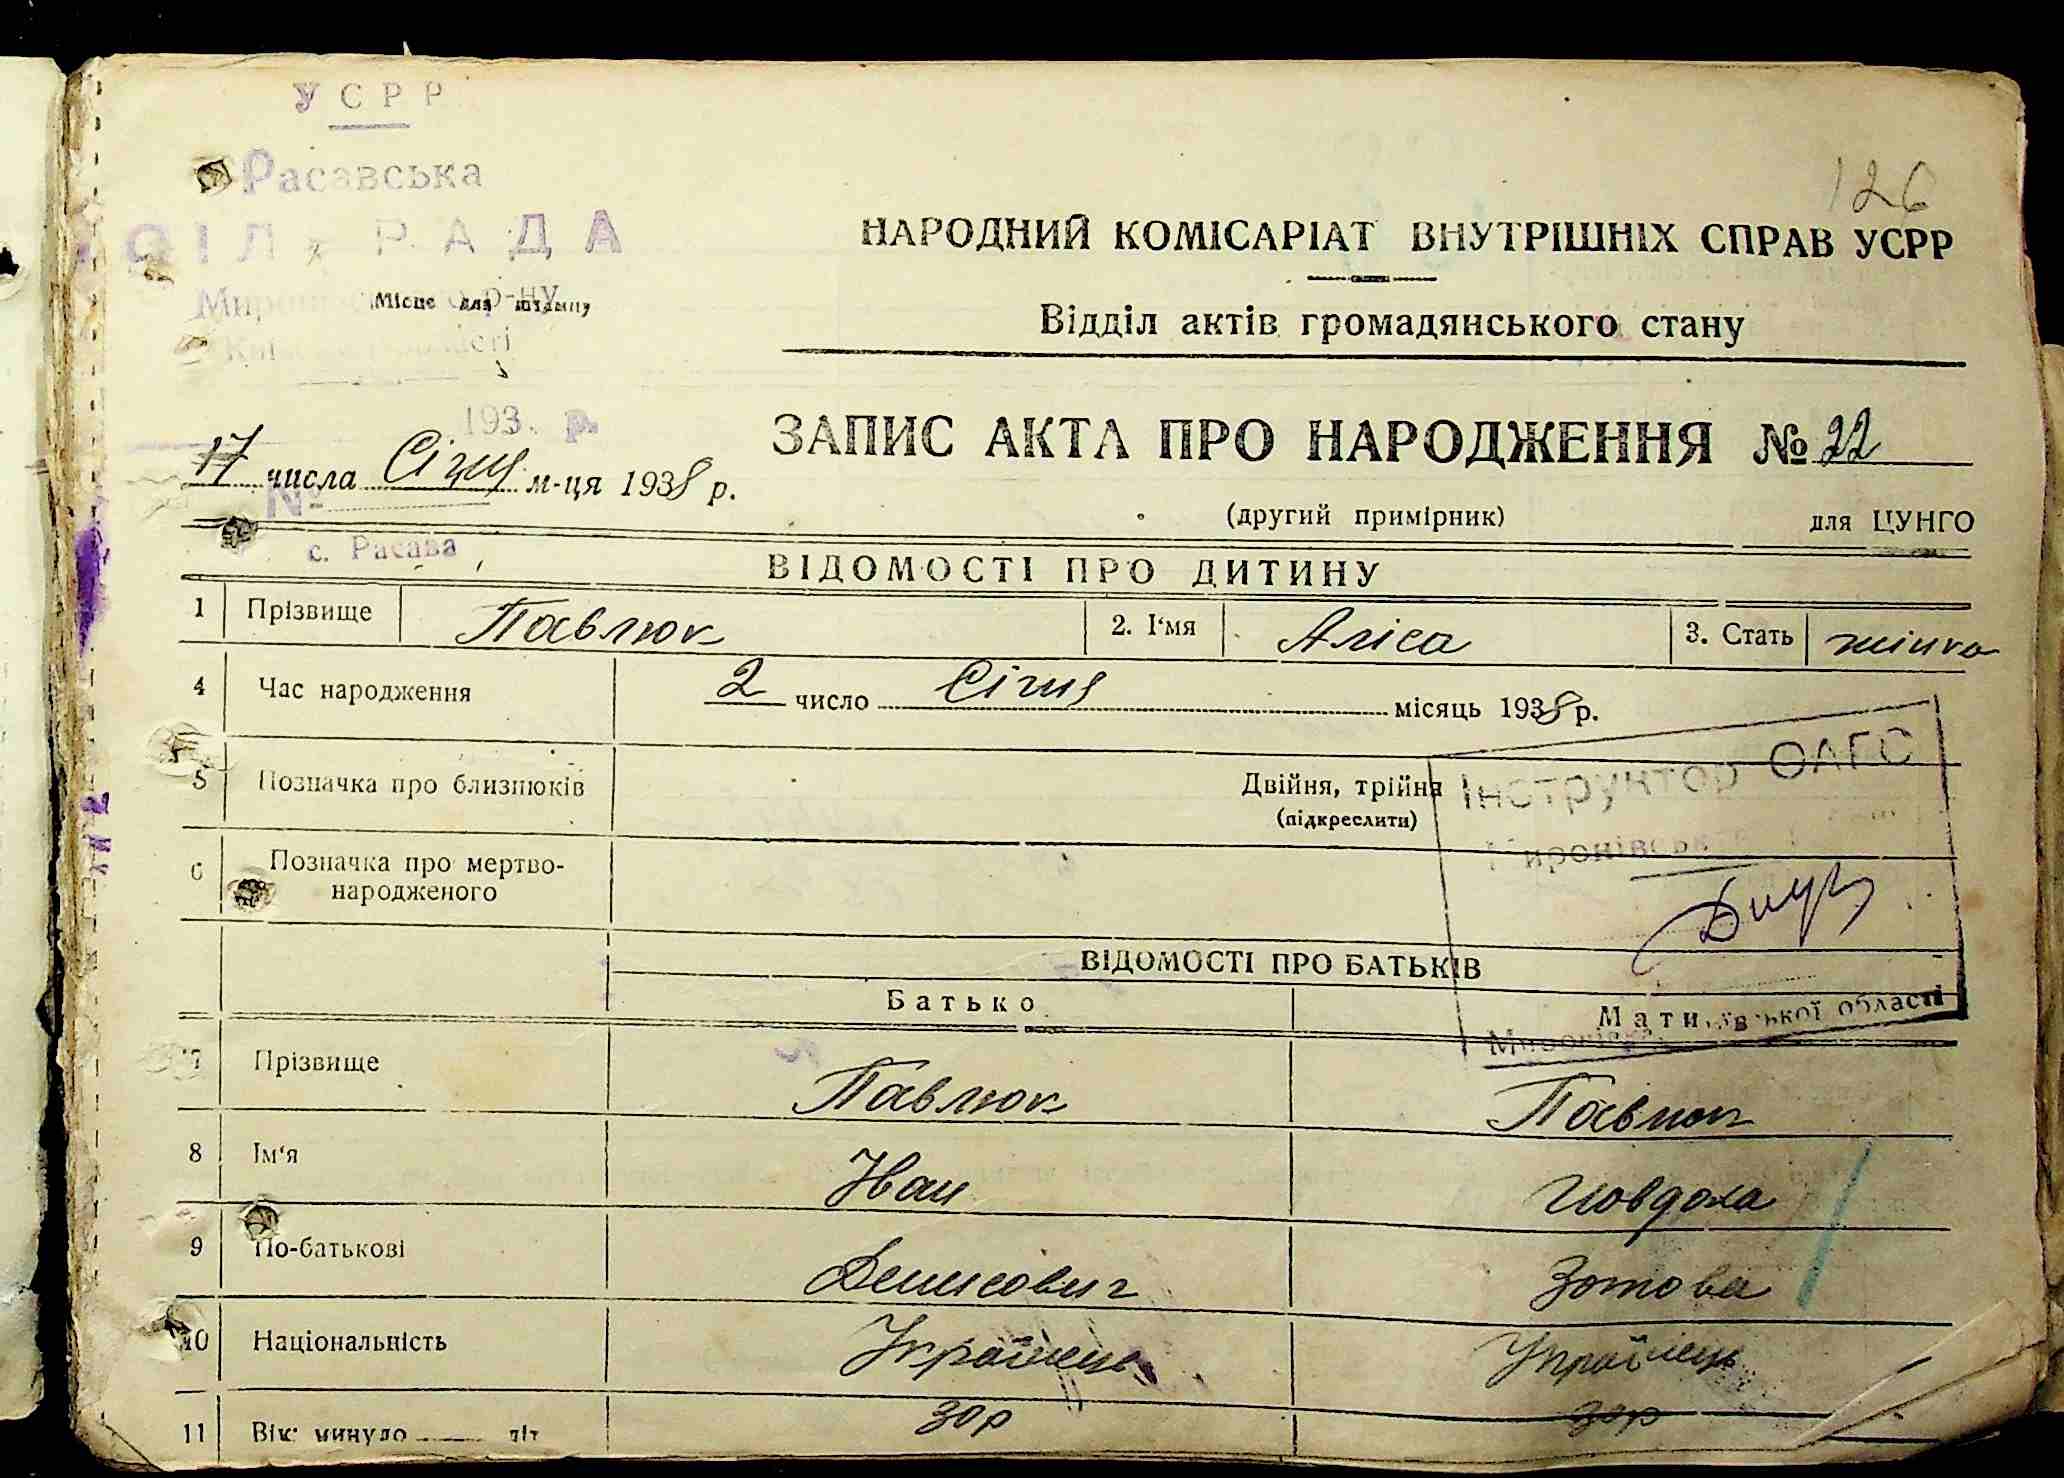 УСРР
126
Расавська
СІЛ РАДА
НАРОДНИЙ КОМІСАРІАТ ВНУТРІШНІХ СПРАВ УСРР
Місце для штампу р-ну
Відділ актів громадянського стану
193 р.
ЗАПИС АКТА ПРО НАРОДЖЕННЯ № 22
17 числа Січня м-ця 1938 р.
№
(другий примірник) для ЦУНГО
с. Расава
ВІДОМОСТІ ПРО ДИТИНУ
1 Прізвище Павлюк 2. І'мя Аліса 3. Стать жінка
4 Час народження 2 число Січня місяць 1938 р.
Інструктор ОАГС
5 Позначка про близнюків Двійня, трійня
(підкреслити)
Миронівськ
6 Позначка про мертво-
народженого
ВІДОМОСТІ ПРО БАТЬКІВ
Батько Мати
області
7 Прізвище Павлюк Павлюк
8 Ім'я Іван Ювдоха
9 По-батькові Денисович Зотова
10 Національність Українець Українець
11 Вік: минуло літ 30р 30р